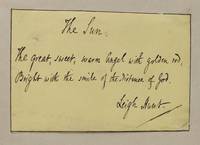 The Sun.
The great, sweet, warm Angel with golden rod,
Bright with the smile of the distance of God.
Leigh Hunt